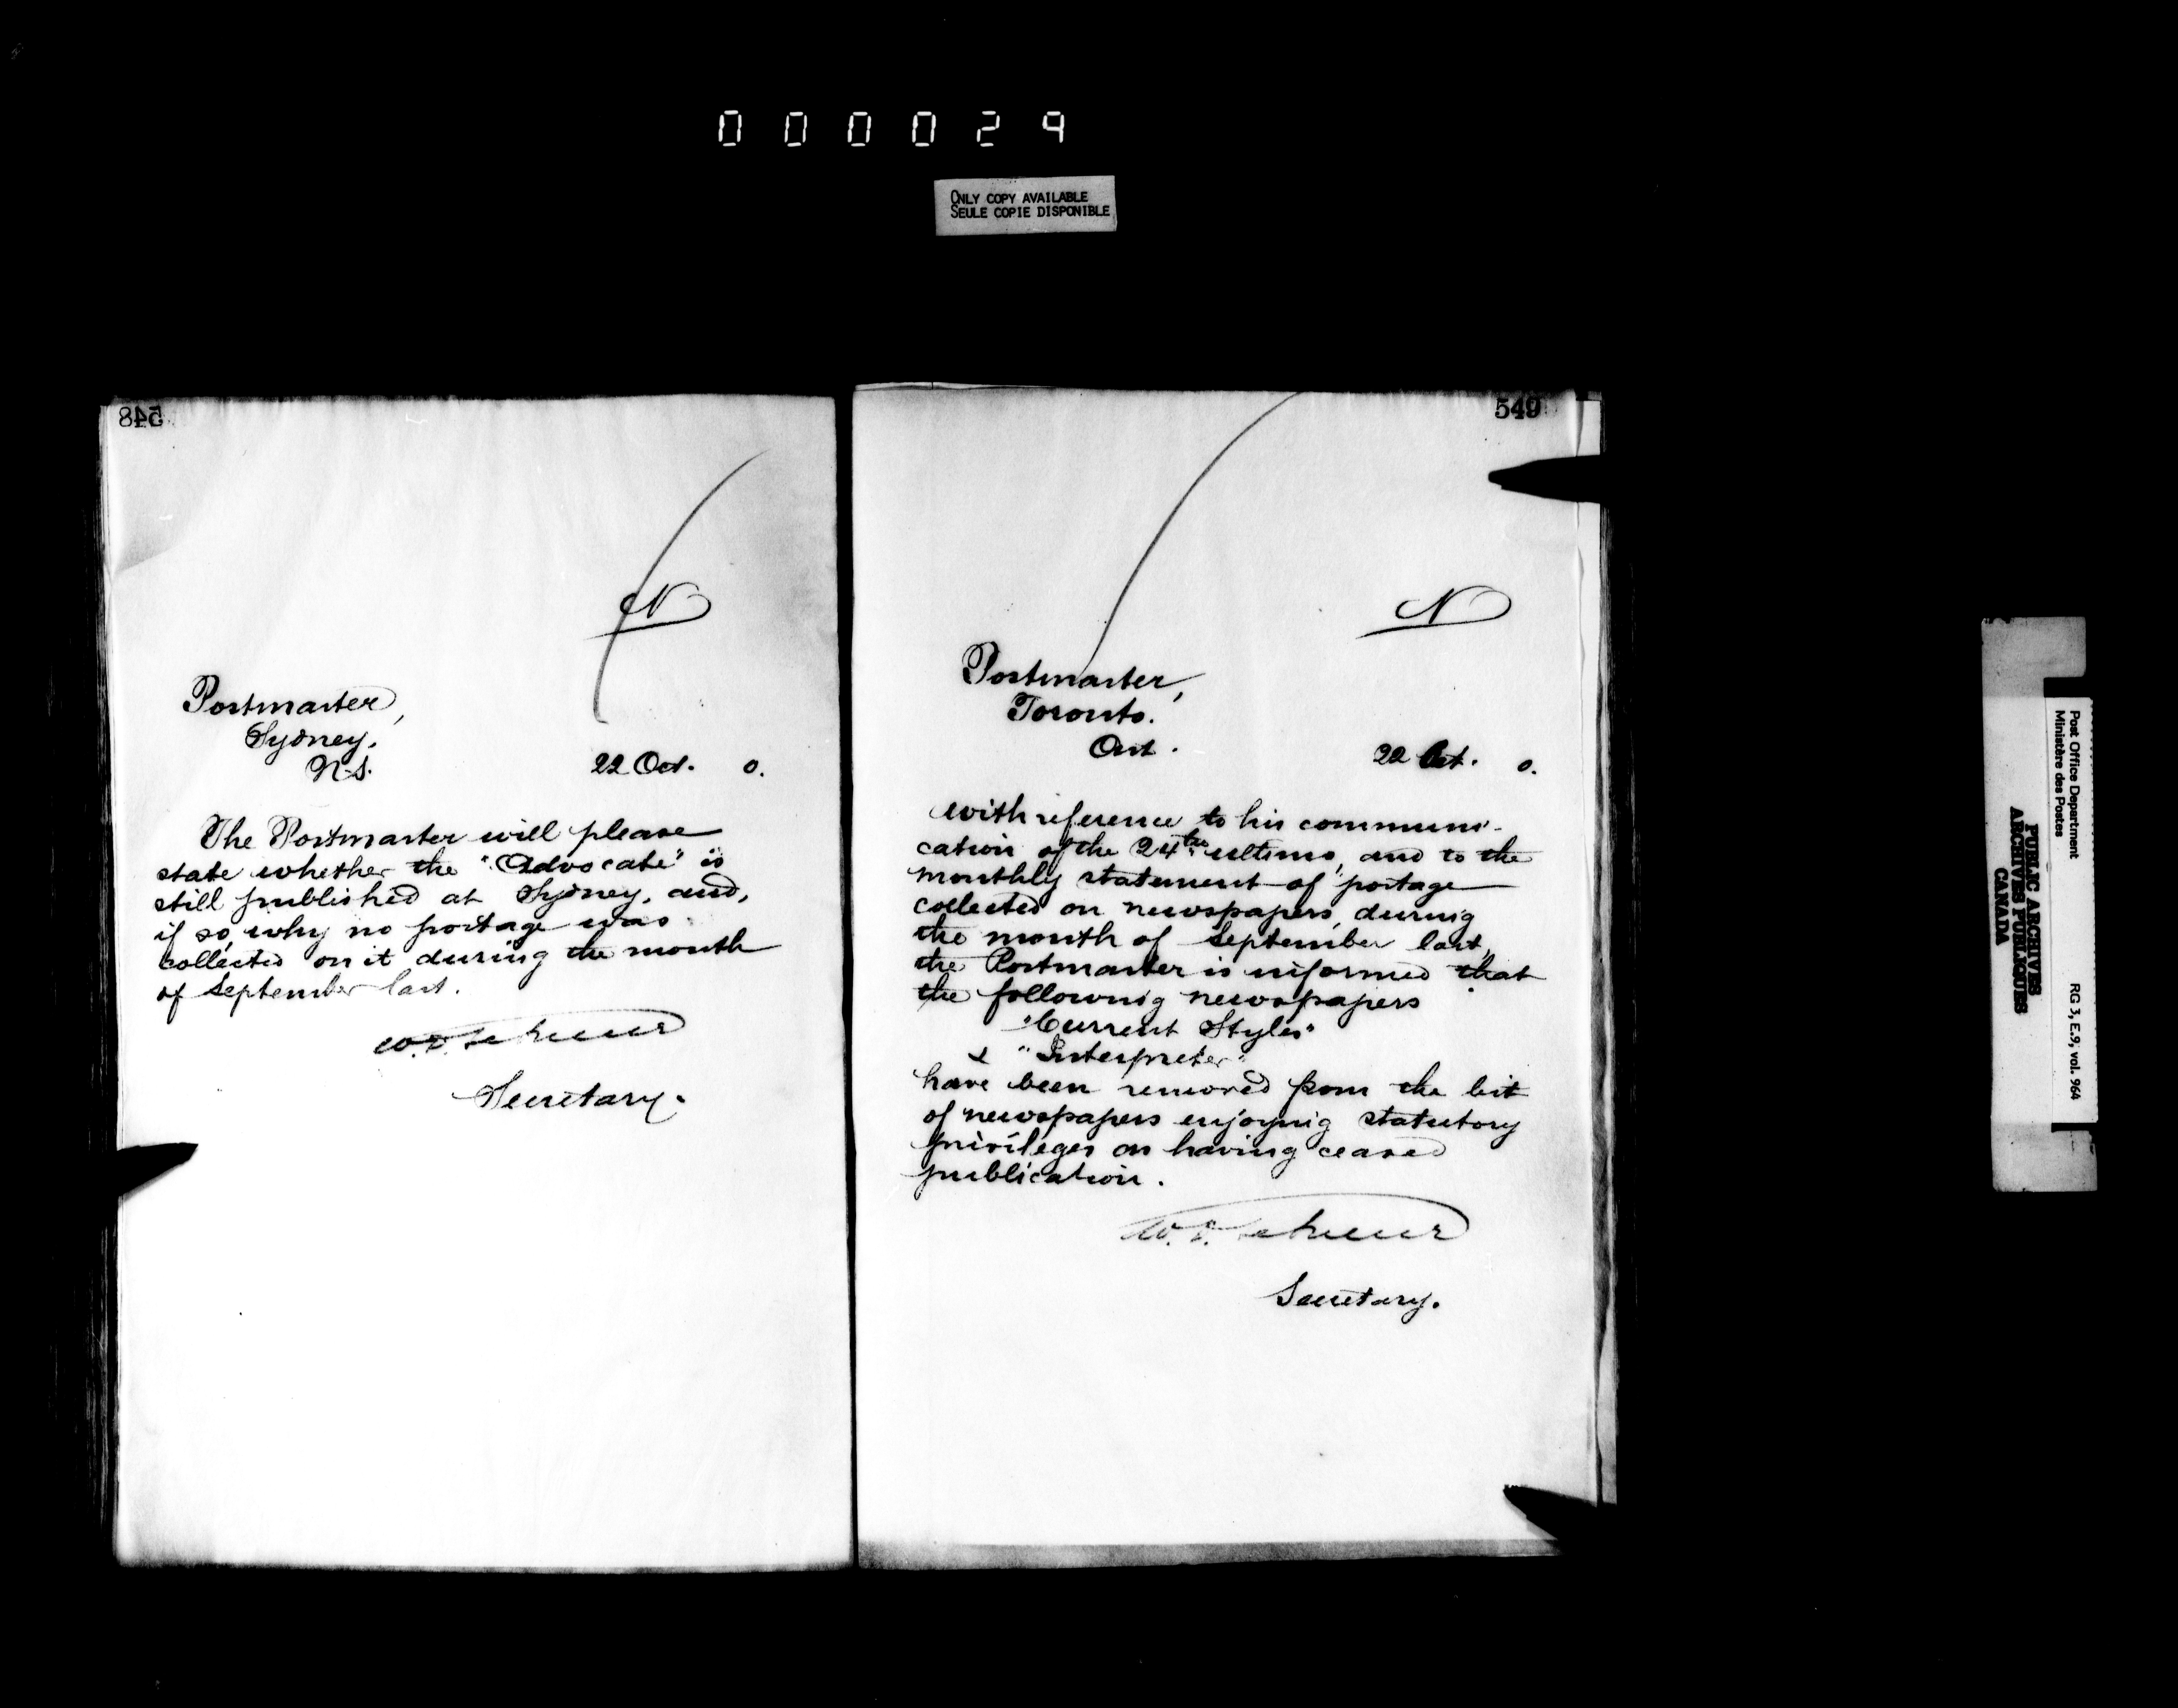 000029
ONLY COPY AVAILABLE
SEULE COPIE DISPONIBLE
548
N
Postmaster,
Sydney.
N.S.
22 Oct. 0.
The Postmaster will please
state whether the "Advocate" is
still published at Sydney, and,
if so, why no postage was
collected on it during the month
of September last.
Secretary.
549
N
Postmaster,
Toronto.
Ont.
22 Oct. 0.
With reference to his communi-
cation of the 24th ultimo, and to the
monthly statement of postage
collected on newspapers, during
the month of September last,
the Postmaster is informed that
the following newspapers
"Current Styles"
& "Interpreter"
have been removed from the list
of newspapers enjoying statutory
privileges as having ceased
publication.
Secretary.
Post Office Department
Ministère des Postes
RG 3, E.9, vol. 964
PUBLIC ARCHIVES
ARCHIVES PUBLIQUES
CANADA